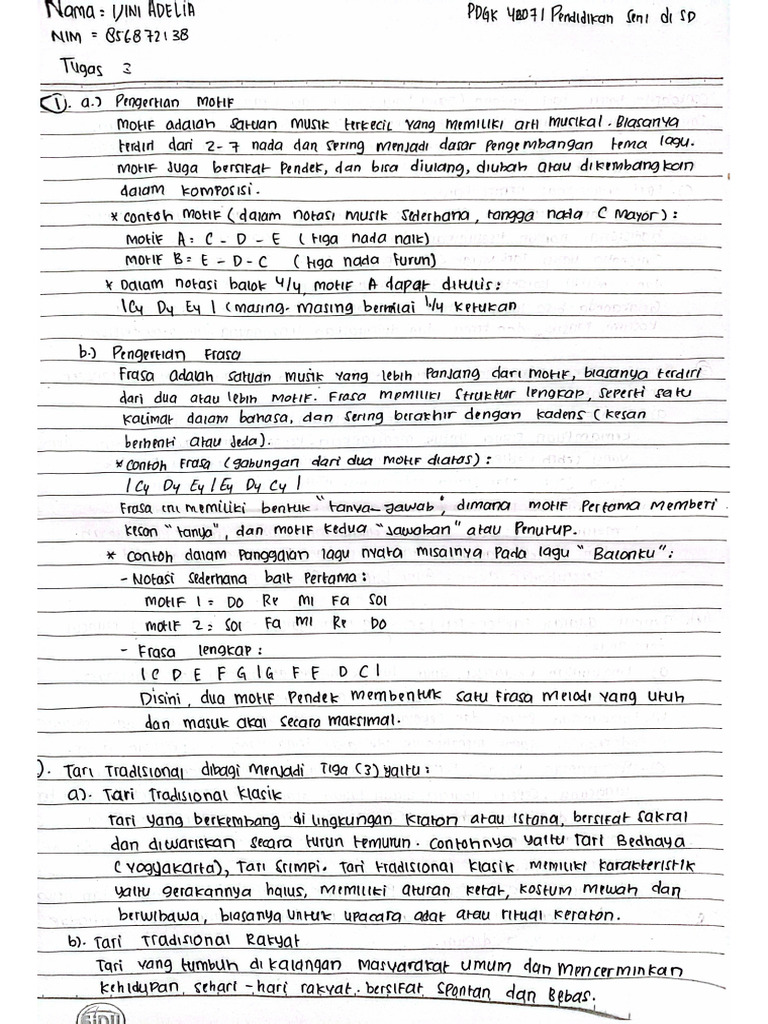 Nama = VINI ADELIA
PDGK 4207 / Pendidikan Seni di SD
NIM = 856872138
Tugas 3
1). a.) Pengertian Motif
Motif adalah satuan musik terkecil yang memiliki arti musikal. Biasanya
terdiri dari 2-7 nada dan sering menjadi dasar pengembangan tema lagu.
Motif juga bersifat pendek, dan bisa diulang, diubah atau dikembangkan
dalam komposisi.
* Contoh motif (dalam notasi musik sederhana, tangga nada C Mayor) :
Motif A = C - D - E (tiga nada naik)
Motif B = E - D - C (tiga nada turun)
* Dalam notasi balok 4/4, motif A dapat ditulis :
| C4 D4 E4 | (masing-masing bernilai 1/4 ketukan
b.) Pengertian Frasa
Frasa adalah satuan musik yang lebih panjang dari motif, biasanya terdiri
dari dua atau lebih motif. Frasa memiliki struktur lengkap, seperti satu
kalimat dalam bahasa, dan sering berakhir dengan kadens (kesan
berhenti atau jeda).
* Contoh Frasa (gabungan dari dua motif diatas) :
| C4 D4 E4 | E4 D4 C4 |
Frasa ini memiliki bentuk "tanya-jawab", dimana motif pertama memberi
kesan "tanya", dan motif kedua "jawaban" atau penutup.
* Contoh dalam panggalan lagu nyata misalnya pada lagu "Balonku" :
- Notasi sederhana bait pertama :
motif 1 = Do Re Mi Fa Sol
motif 2 = Sol Fa Mi Re Do
- Frasa lengkap :
| C D E F G | G F E D C |
Disini, dua motif pendek membentuk satu frasa melodi yang utuh
dan masuk akal secara maksimal.
). Tari Tradisional dibagi menjadi Tiga (3) yaitu :
a). Tari Tradisional Klasik
Tari yang berkembang di lingkungan kraton atau istana, bersifat sakral
dan diwariskan secara turun temurun. Contohnya yaitu Tari Bedhaya
(Yogyakarta), Tari Srimpi. Tari tradisional klasik memiliki karakteristik
yaitu gerakannya halus, memiliki aturan ketat, kostum mewah dan
berwibawa, biasanya untuk upacara adat atau ritual keraton.
b). Tari Tradisional Rakyat
Tari yang tumbuh di kalangan masyarakat umum dan mencerminkan
kehidupan sehari-hari rakyat. bersifat spontan dan bebas.
SIDU